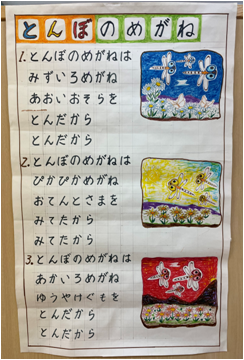 とんぼのめがね
1.とんぼのめがねは
みずいろめがね
あおいおそらを
とんだから
とんだから
2.とんぼのめがねは
ぴかぴかめがね
おてんとさまを
みてたから
みてたから
3.とんぼのめがねは
あかいろめがね
ゆうやけぐもを
とんだから
とんだから